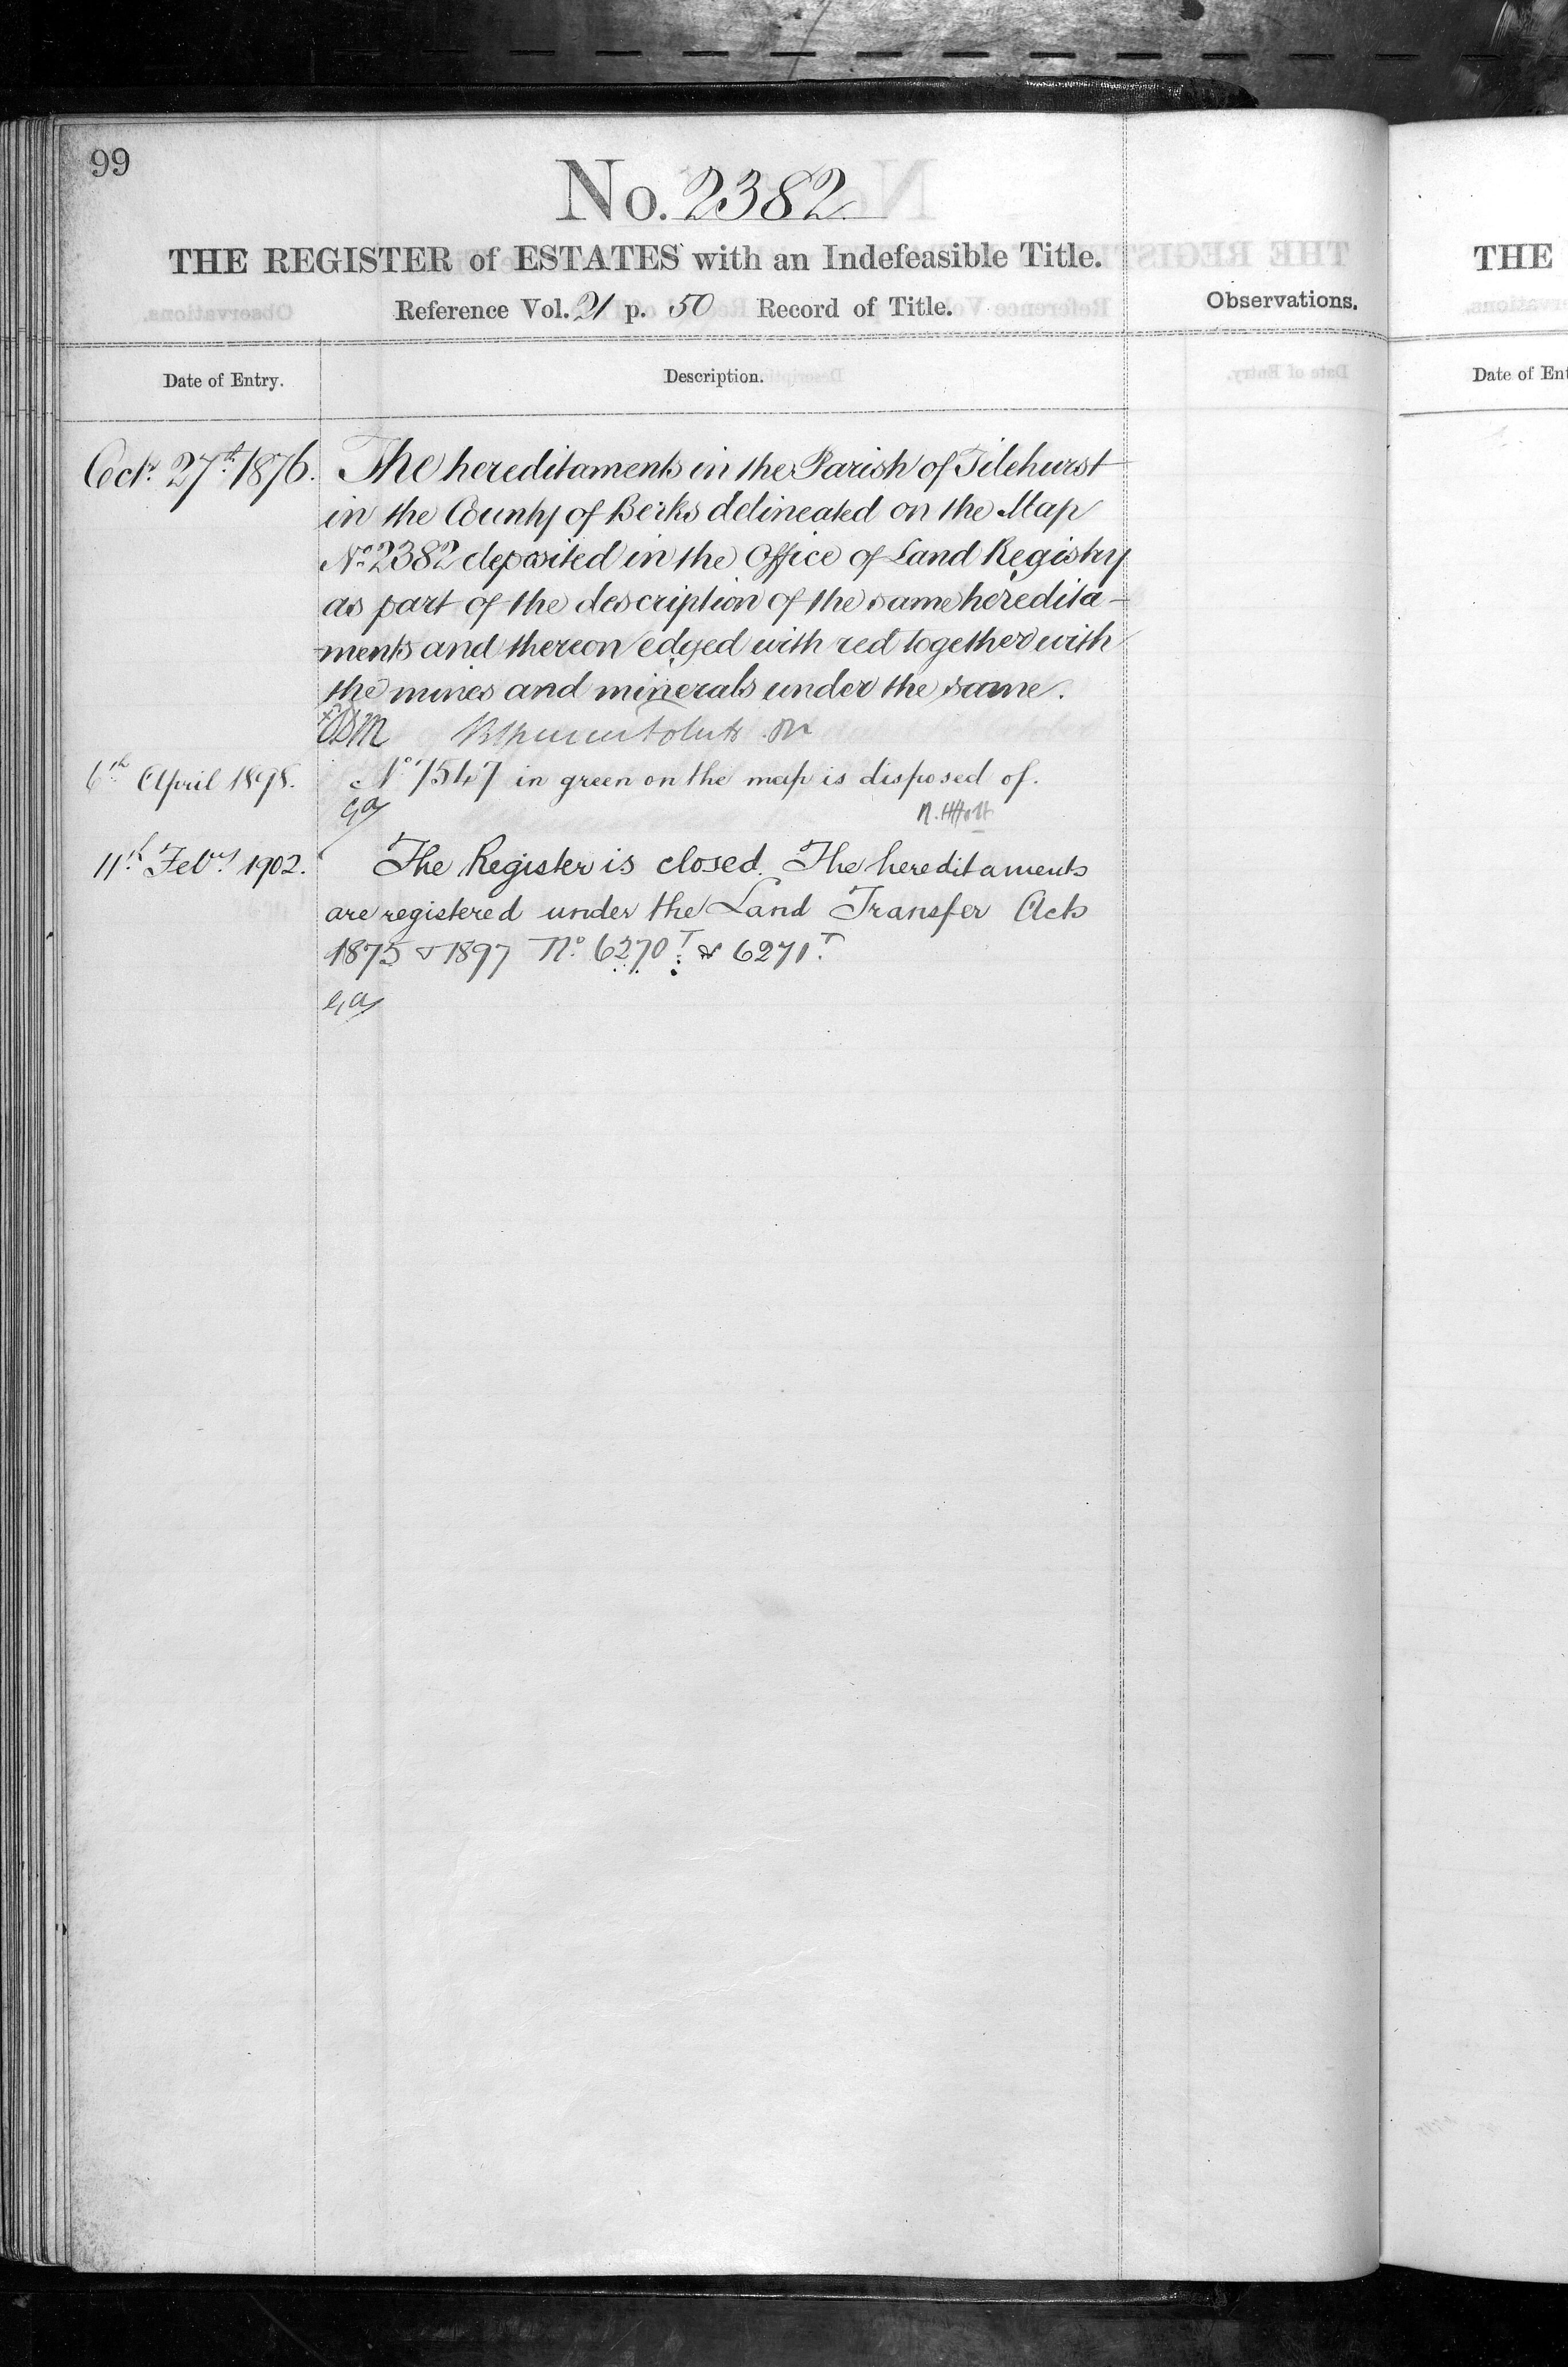 99
No. 2382
THE REGISTER of ESTATES with an Indefeasible Title.
Reference Vol. 21 p. 50 Record of Title.
Observations.
Date of Entry.
Description.
Octr. 27th 1876.
The hereditaments in the Parish of Tilehurst
in the County of Berks delineated on the Map
No. 2382 deposited in the Office of Land Registry
as part of the description of the same heredita-
ments and thereon edged with red together with
the mines and minerals under the same.
6th April 1898.
No. 7547 in green on the map is disposed of.
11th Feby. 1902.
The Register is closed. The hereditaments
are registered under the Land Transfer Acts
1875 & 1897 No. 6270T. & 6271T.
THE
Date of Ent